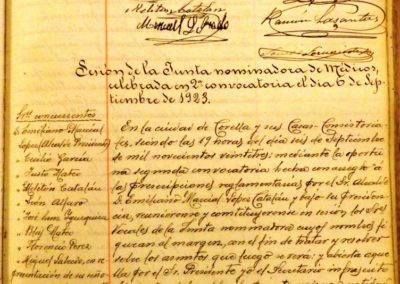 Melitón Catalán
Manuel L. Prado
Ramón Lasantas
Sesión de la Junta nominadora de Médicos,
celebrada en 2ª convocatoria el dia 6 de Sep-
tiembre de 1923.
Sres. concurrentes
D. Emiliano Marcial
López Alcalde Presidente
" Cecilio García
" Justo Mateo
" Melitón Catalán
" León Alfaro
" Blas Mateo
" Florencio Pérez
" Miguel Salcedo, en re-
presentación de su seño-
En la ciudad de Corella y sus Casas-Consistoria-
les, siendo las 19 horas del dia seis de Septiembre
de mil novecientos veintitres; mediante la oportu-
na segunda convocatoria hecha con arreglo a
las prescripciones reglamentarias por el Sr. Alcalde
D. Emiliano Marcial López Catalán y bajo su Presiden-
cia, reuniéronse y constituyéronse en sesión los Vo-
cales de la Junta nominadora cuyos nombres fi-
guran al margen, con el fin de tratar y resolver
sobre los asuntos que luego se dirá; y abierta aque-
lla por el Sr. Presidente yo el Secretario infrascrito